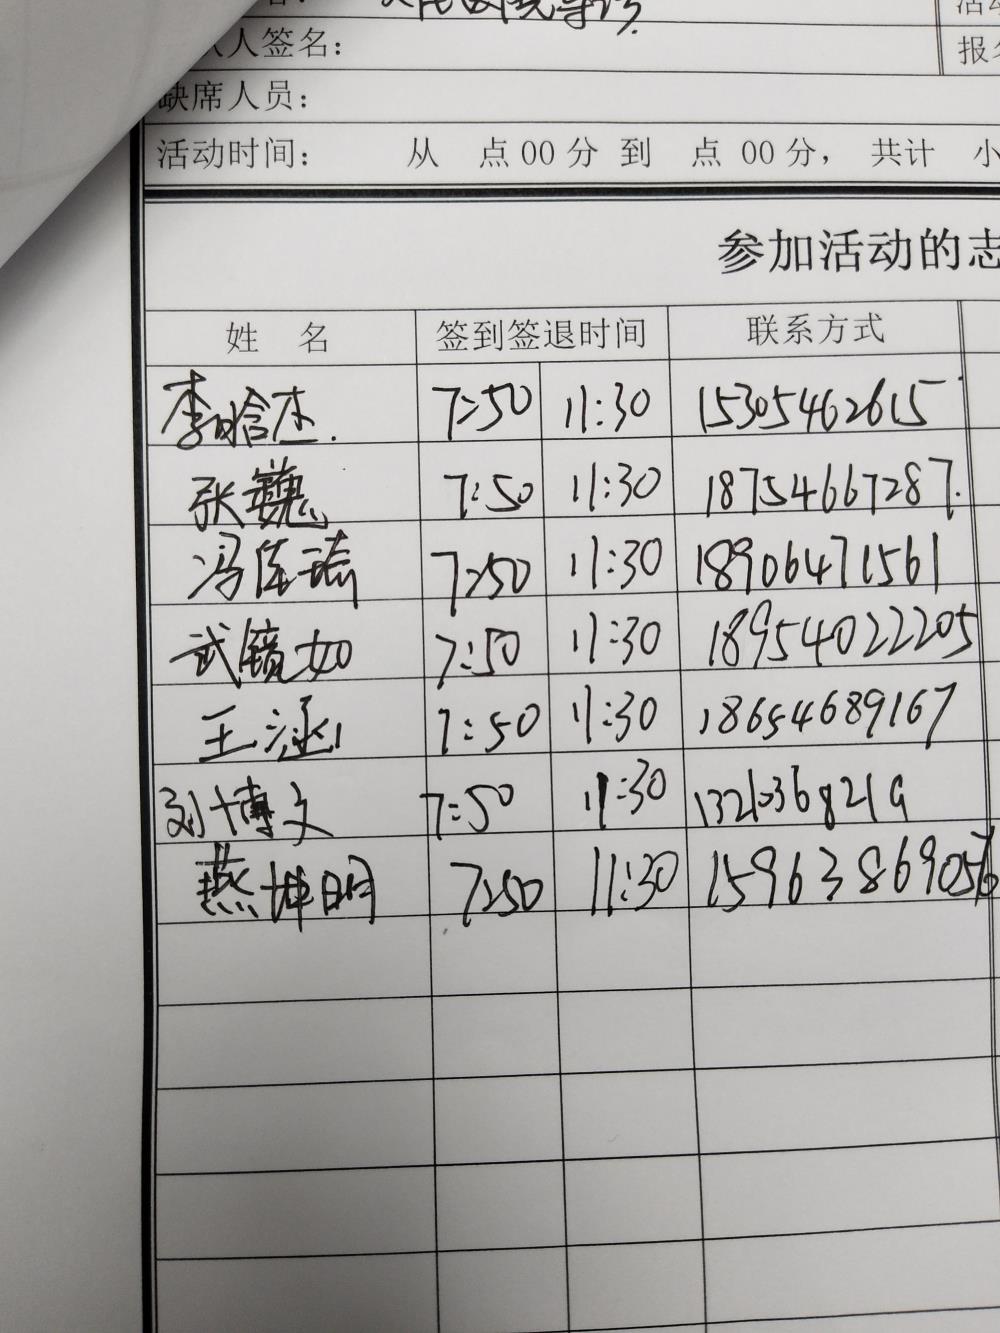 人签名：
报名
缺席人员：
活动时间： 从 点00分 到 点 00分， 共计 小
参加活动的志
姓 名 签到签退时间 联系方式
李晗杰. 7:50 11:30 15305462615
张巍 7:50 11:30 18754667287.
冯佳瑞 7:50 11:30 18906471561
武镜如 7:50 11:30 18954022205
王涵 7:50 11:30 18654689167
刘博文 7:50 11:30 13210368219
燕坤明 7:50 11:30 15963869056